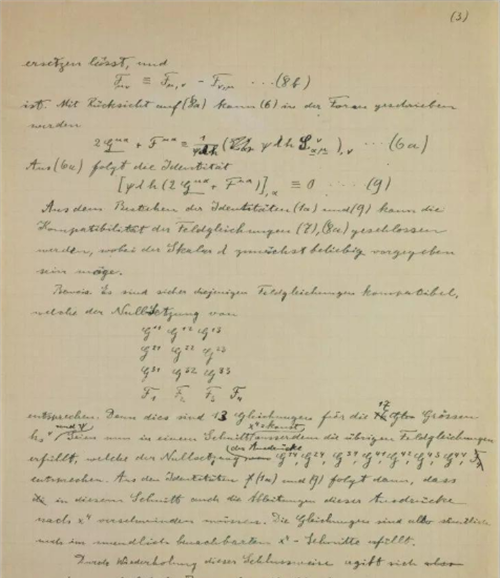 (3)
ersetzen lässt, und
F_μν ≡ F_μ,ν − F_ν,μ ···(8b)
ist. Mit Rücksicht auf (8a) kann (6) in der Form geschrieben
werden
2 G^μα + F^μα ≡ (ψ d h S ),ν ···(6a)
Aus (6a) folgt die Identität
[ψ d h (2 G^μα + F^μα)],α ≡ 0 ···· (9)
Aus dem Bestehen der Identitäten (1a) und (9) kann die
Kompatibilität der Feldgleichungen (7), (8a) geschlossen
werden, wobei der Skalar d zunächst beliebig vorgegeben
sein möge.
Beweis. Es sind sicher diejenigen Feldgleichungen kompatibel,
welche der Nullsetzung von
G^11 G^12 G^13
G^21 G^22 G^23
G^31 G^32 G^33
F_1 F_2 F_3 F_4
entsprechen. Denn dies sind 13 Gleichungen für die 17 Grössen
h und ψ. Seien nun in einem Schnitt x^4 = konst ausserdem die übrigen Feldgleichungen
erfüllt, welche der Nullsetzung der Ausdrücke G^14 G^24, G^34, G^41 G^42 G^43 G^44,
entsprechen. Aus den Identitäten (1a) und (9) folgt dann, dass
in diesem Schnitt auch die Ableitungen dieser Ausdrücke
nach x^4 verschwinden müssen. Die Gleichungen sind also
im unendlich benachbarten x^4-Schnitte erfüllt.
Durch Wiederholung dieser Schlussweise ergibt sich